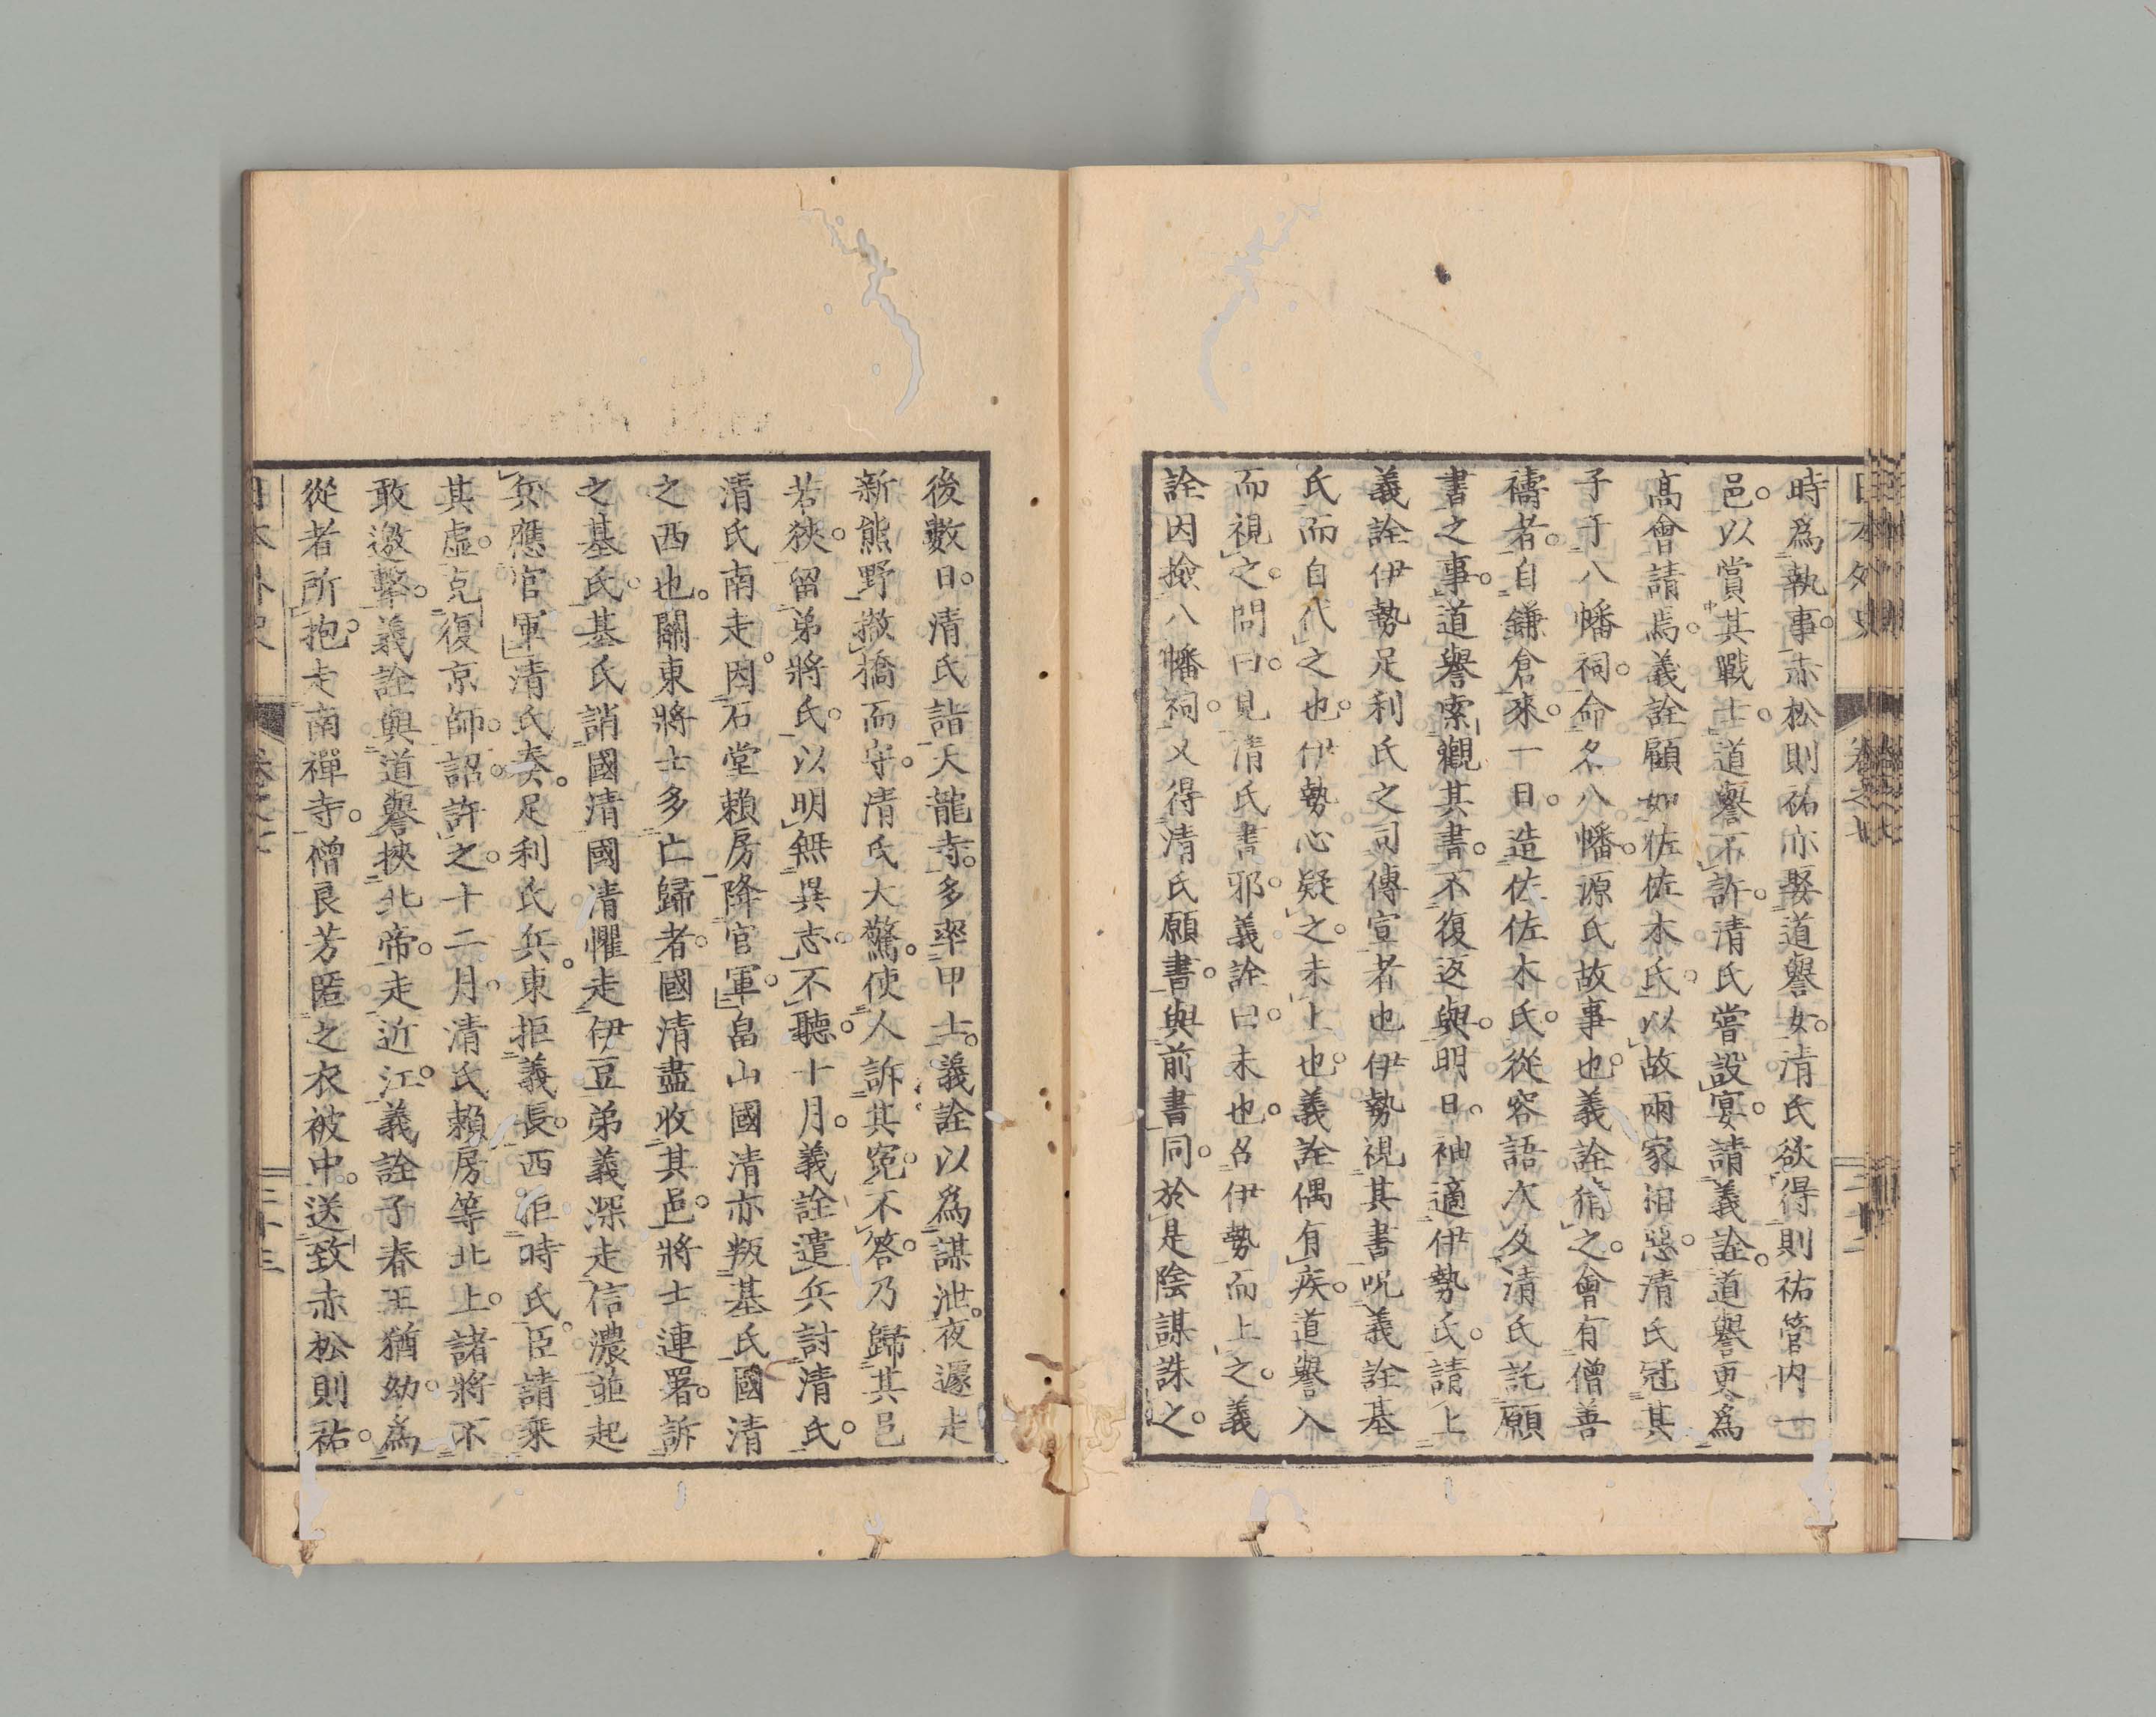 時爲執事。赤松則祐亦娶道譽女。清氏欲得則祐管内一
邑。以賞其戰士。道譽不許。清氏嘗設宴。請義詮。道譽更爲
髙會請焉。義詮顧如佐佐木氏。以故兩家相惡。清氏冠其
子于八幡祠。命名八幡。源氏故事也。義詮猜之。會有僧善
禱者。自鎌倉來。一日。造佐佐木氏。從容語次及清氏託願
書之事。道譽索觀其書。不復返與。明日。袖適伊勢氏。請上
義詮伊勢足利氏之司傳宣者也伊勢視其書呪義詮基
氏而自代之也。伊勢心疑之。未上也。義詮偶有疾。道譽入
而視之。問曰。見清氏書邪。義詮曰。未也。召伊勢而上之。義
詮因撿八幡祠。又得清氏願書。與前書同。於是陰謀誅之。
後數日。清氏詣天龍寺。多率甲士。義詮以爲謀泄。夜遽走
新熊野撤橋而守。清氏大驚。使人訴其寃。不答。乃歸其邑
若狹。留弟將氏。以明無異志。不聽。十月。義詮遣兵討清氏。
清氏南走。因石堂賴房降官軍。畠山國清亦叛基氏國清
之西也。關東將士多亡歸者。國清盡收其邑。將士連署。訴
之基氏。基氏誚國清國清懼走伊豆弟義深走信濃並起
兵應官軍清氏奏。足利氏兵。東拒義長。西拒時氏。臣請乘
其虛。克復京師。詔許之。十二月。清氏賴房等北上。諸將不
敢邀擊。義詮與道譽挾北帝。走近江。義詮子春王猶幼。爲
從者所抱。走南禪寺。僧良芳匿之衣被中。送致赤松則祐。